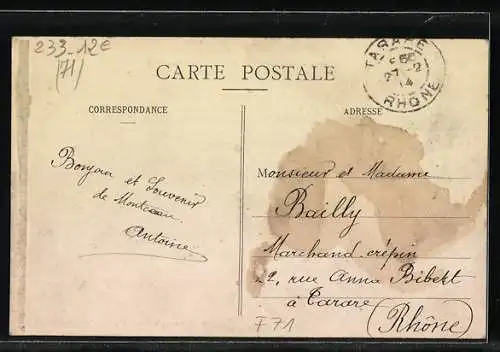 233-12€
(71)
TARARE
27-2
14
RHÔNE
CARTE POSTALE
CORRESPONDANCE
ADRESSE
Bonjour et Souvenir
de Montceau
Antoine
Monsieur et Madame
Bailly
Marchand crépin
22, rue Anna Bibert
à Tarare
(Rhône)
F71